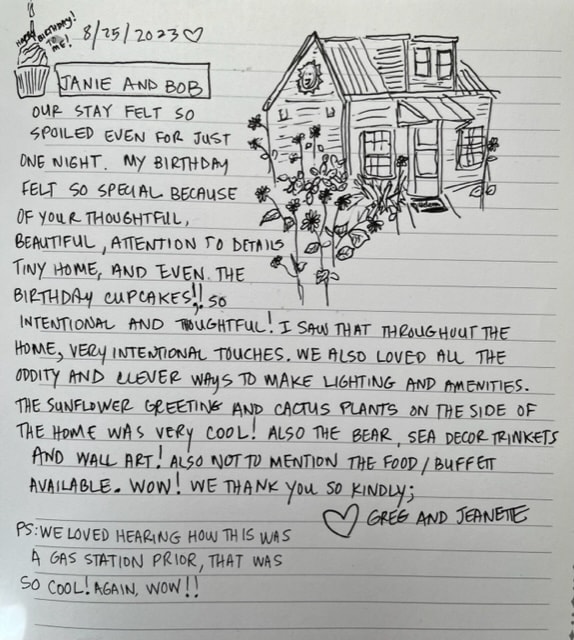 HAPPY BIRTHDAY!
TO ME!
8/25/2023♡
JANIE AND BOB
OUR STAY FELT SO
SPOILED EVEN FOR JUST
ONE NIGHT. MY BIRTHDAY
FELT SO SPECIAL BECAUSE
OF YOUR THOUGHTFUL,
BEAUTIFUL, ATTENTION TO DETAILS
TINY HOME, AND EVEN THE
BIRTHDAY CUPCAKES!! SO
INTENTIONAL AND THOUGHTFUL! I SAW THAT THROUGHOUT THE
HOME, VERY INTENTIONAL TOUCHES. WE ALSO LOVED ALL THE
ODDITY AND CLEVER WAYS TO MAKE LIGHTING AND AMENITIES.
THE SUNFLOWER GREETING AND CACTUS PLANTS ON THE SIDE OF
THE HOME WAS VERY COOL! ALSO THE BEAR, SEA DECOR TRINKETS
AND WALL ART! ALSO NOT TO MENTION THE FOOD/BUFFETT
AVAILABLE. WOW! WE THANK YOU SO KINDLY;
♡ GREG AND JEANETTE
PS: WE LOVED HEARING HOW THIS WAS
A GAS STATION PRIOR, THAT WAS
SO COOL! AGAIN, WOW!!